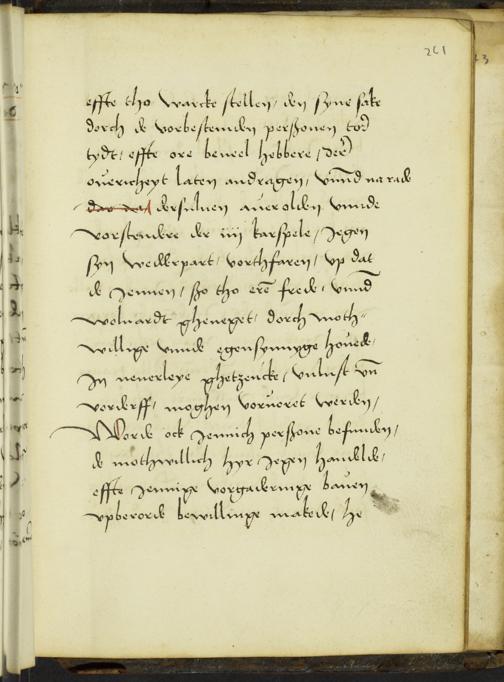 261
effte tho warcke stellen, den syne sake
dorch de vorbestemden perszonen tor
tydt, effte ore beveel hebbere, der
overicheyt laten andragen, vnnd na rade
dersuluen auerolden vnnde
vorstendere der iiij karspele, Jegen
syn wedderpart, vorthfaren, vp dat
de Jennen, szo tho ere frede, vnnd
woluardt gheneget, dorch moth-
willige vnnde egensynnyge houede,
In neuerleye ghetzencke, vnlust vn
vorderff, moghen voruoret werden,
Worde ock Jennich perszone befunden,
de mothwillich hyr Jegen handelde,
effte Jennige vorgaderinge bauen
vpberorde bewillinge makede, he